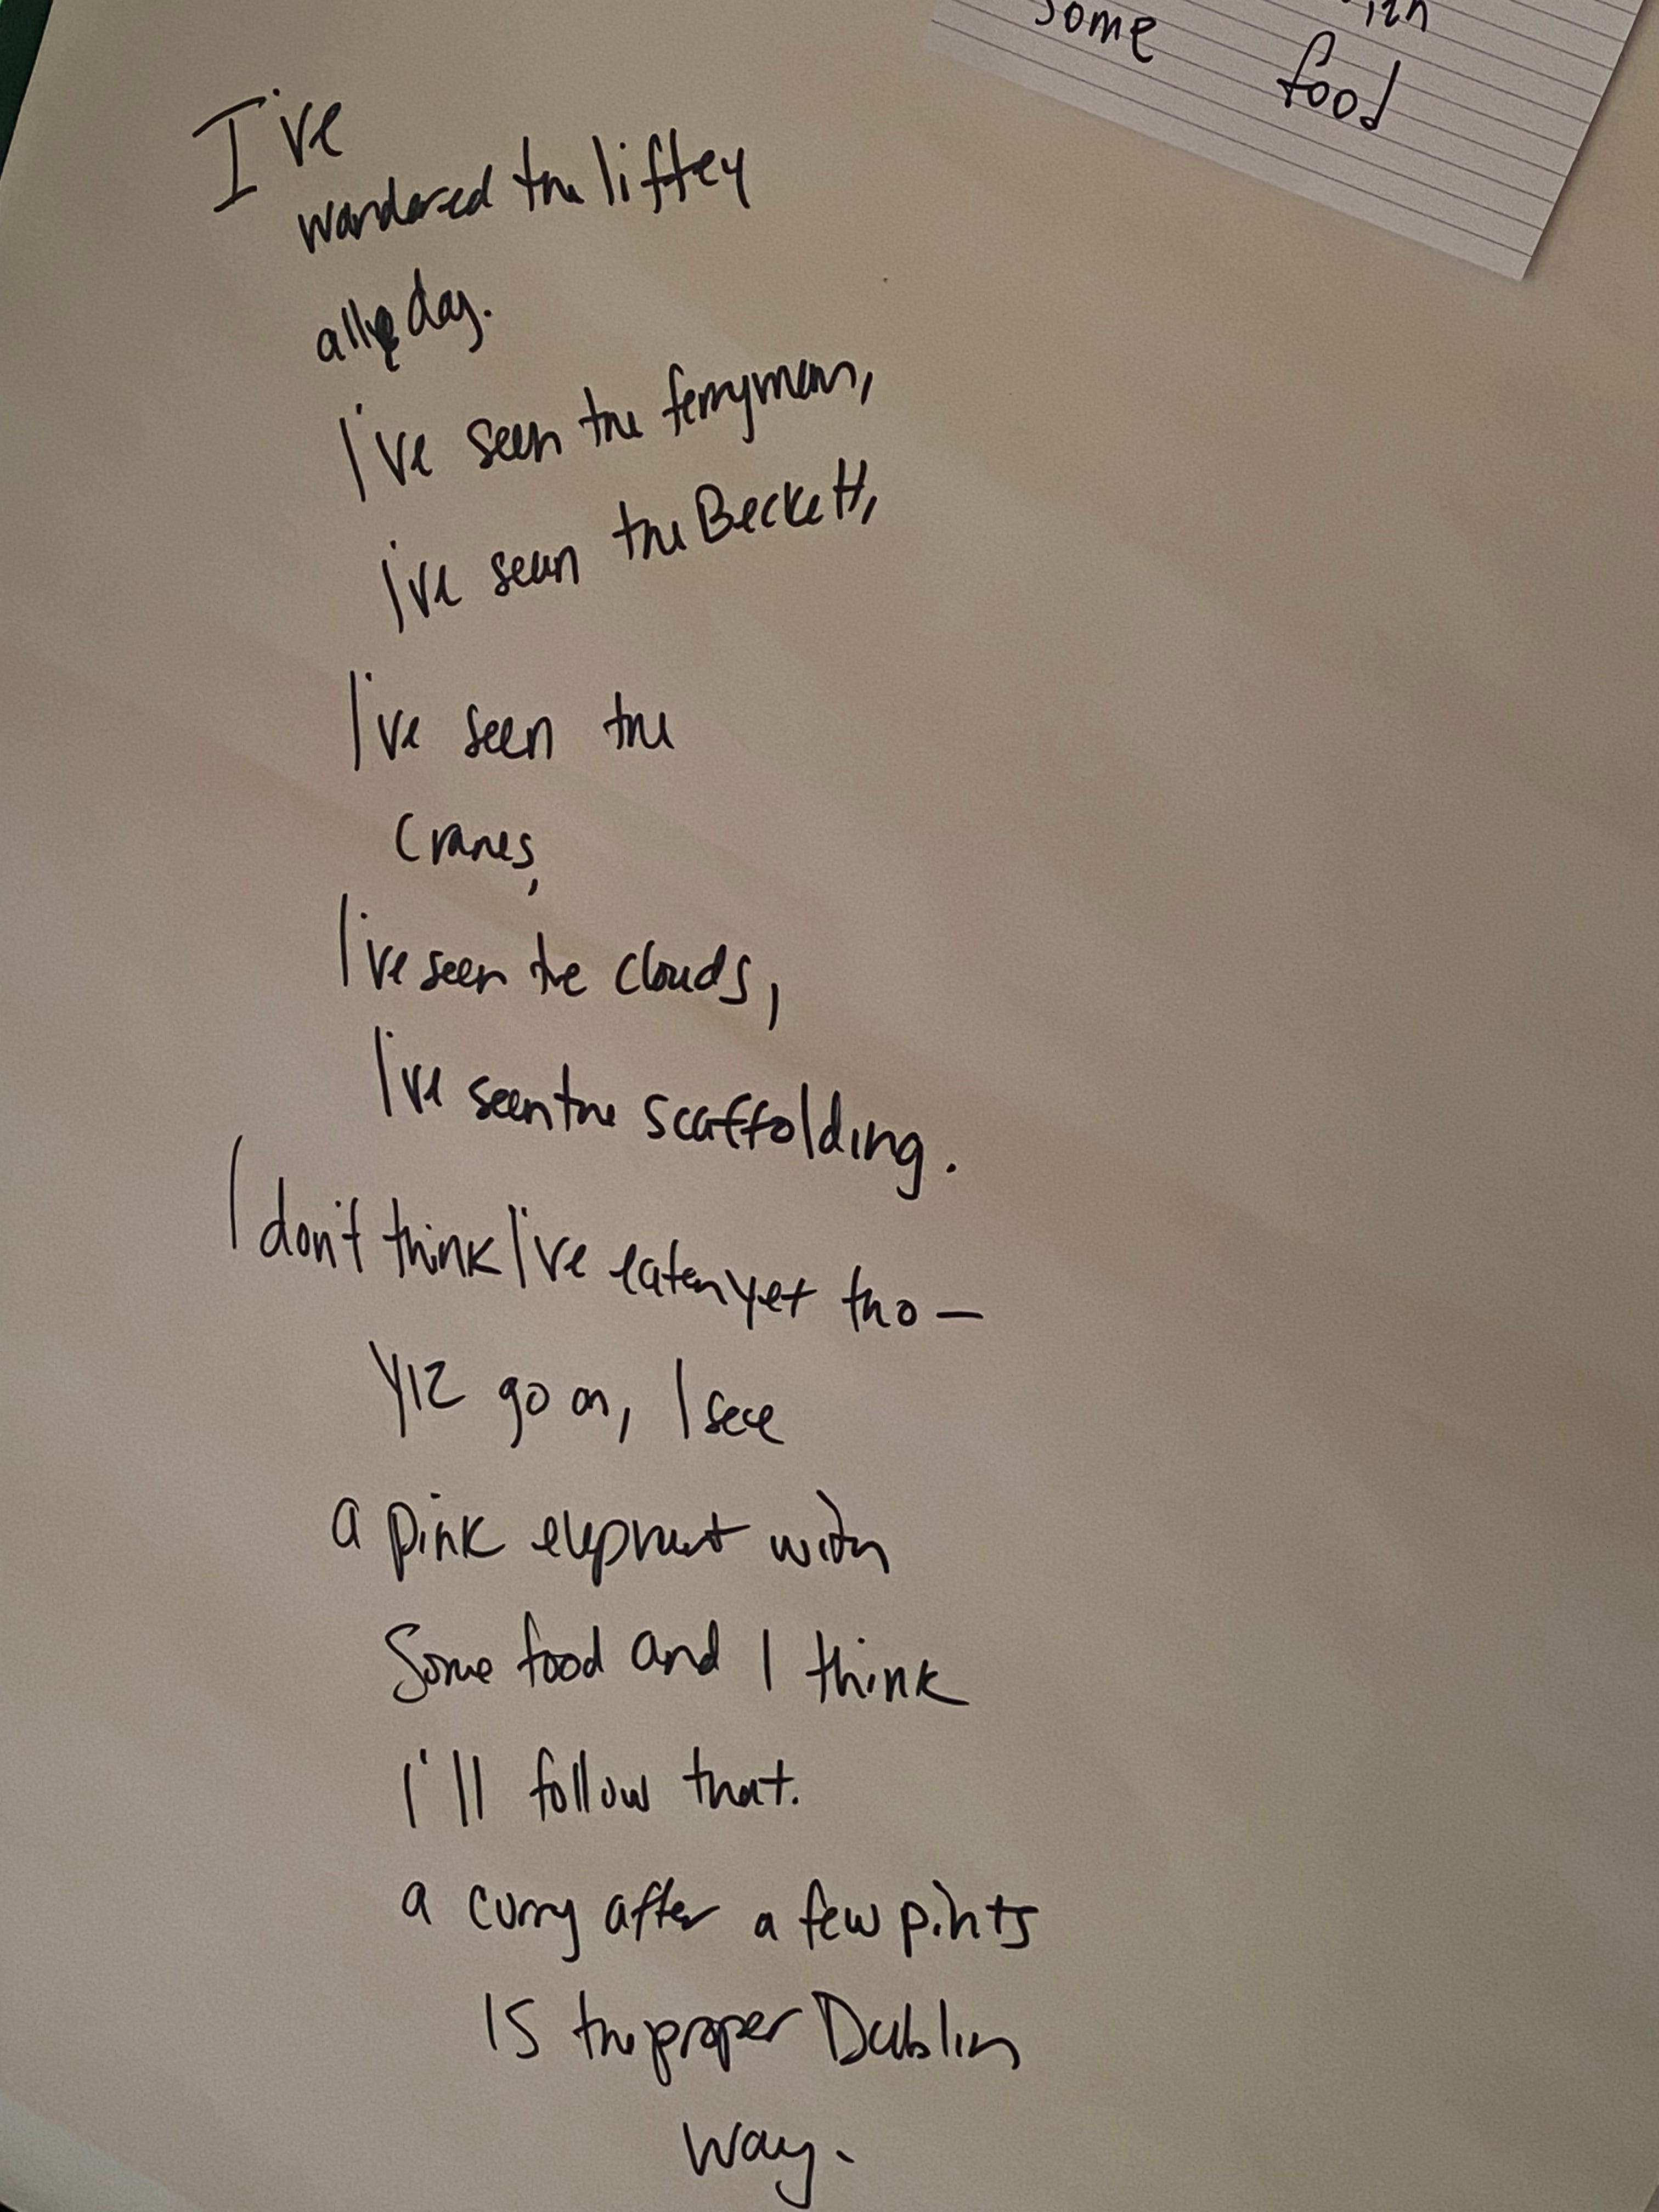 some
food
I've
wandered the liffey
all day.
I've seen the ferryman,
i've seen the Beckett,
I've seen the
cranes,
I've seen the clouds,
I've seen the scaffolding.
I don't think I've eaten yet tho —
Yiz go on, I see
a pink elephant with
Some food and I think
I'll follow that.
a curry after a few pints
IS the proper Dublin
way.